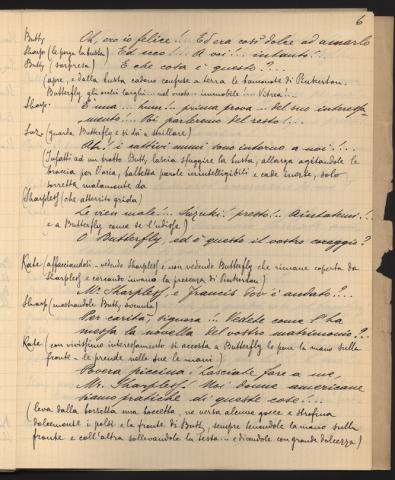 6
Butty Oh, ero io felice!... Ed era così dolce ad amarlo
Sharps (le porge la busta) Ed ecco!... A voi!... intanto!..
Butty (sorpresa) E che cosa è questo?...
(apre, e dalla busta cadono confuse a terra le banconote di Pinkerton.
Butterfly gli occhi larghi... nel vuoto... immobile!... Vitrea!...
Sharps. È una... hum!... prima prova... del suo interessa-
mento!... Poi parleremo del resto!...
Suz (guarda Butterfly e si dà a strillare)
Ahi! i cattivi numi sono intorno a noi!...
(Infatti ad un tratto Butty lascia sfuggire la busta, allarga agitandole le
braccia per l'aria, balbetta parole inintelligibili e cade inerte, solo
sorretta malamente da
(Sharpless) che atterrito grida)
Le vien male!... Suzuki! presto!.. Aiutatemi!...
e a Butterfly come se l'udisse)
O Butterfly, ed è questo il vostro coraggio?
Kate (affacciandosi... vedendo Sharpless e non vedendo Butterfly che rimane coperta da
Sharpless e cercando invano la presenza di Pinkerton)
Mr. Sharpless, e Francis dov'è andato?....
Sharps (mostrandole Butty svenuta)
Per carità, signora!... Vedete come l'ha
messa la novella del vostro matrimonio?..
Kate (con vivissimo interessamento si accosta a Butterfly le pone la mano sulla
fronte - le prende nelle sue le mani)
Povera piccina! Lasciate fare a me,
Mr. Sharpless! Noi donne americane
siamo pratiche di queste cose!...
(leva dalla borsetta una boccetta, ne versa alcune gocce e strofina
dolcemente i polsi e la fronte di Butty, sempre tenendole la mano sulla
fronte e coll'altra sollevandole la testa... e dicendole con grande dolcezza)